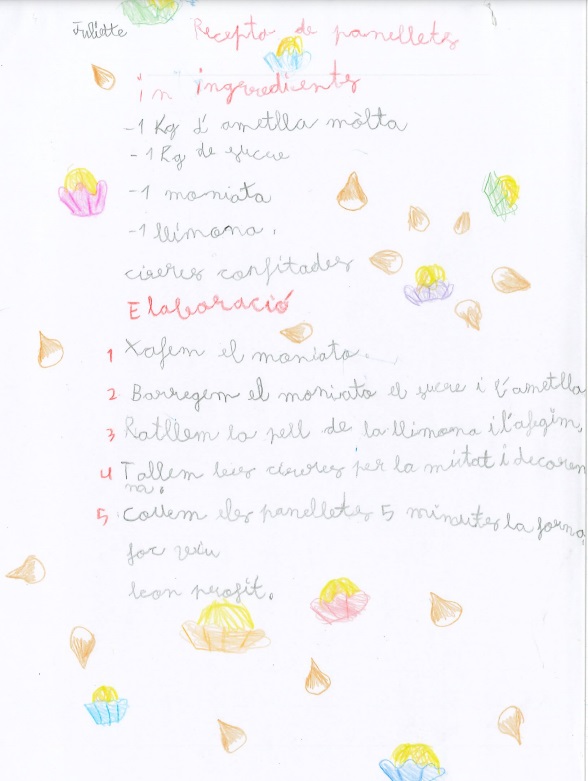 Juliette
Recepta de panellets
in ingredients
-1 Kg d'ametlla mòlta
-1 Kg de sucre
-1 moniato
-1 llimona.
cireres confitades
Elaboració
1 Xafem el moniato.
2 Barregem el moniato el sucre i l'ametlla
3 Ratllem la pell de la llimona i l'afegim,
4 Tallem les cireres per la mitat i decorem
5 Collem els panellets 5 minutes la forma
foc viu
bon profit.